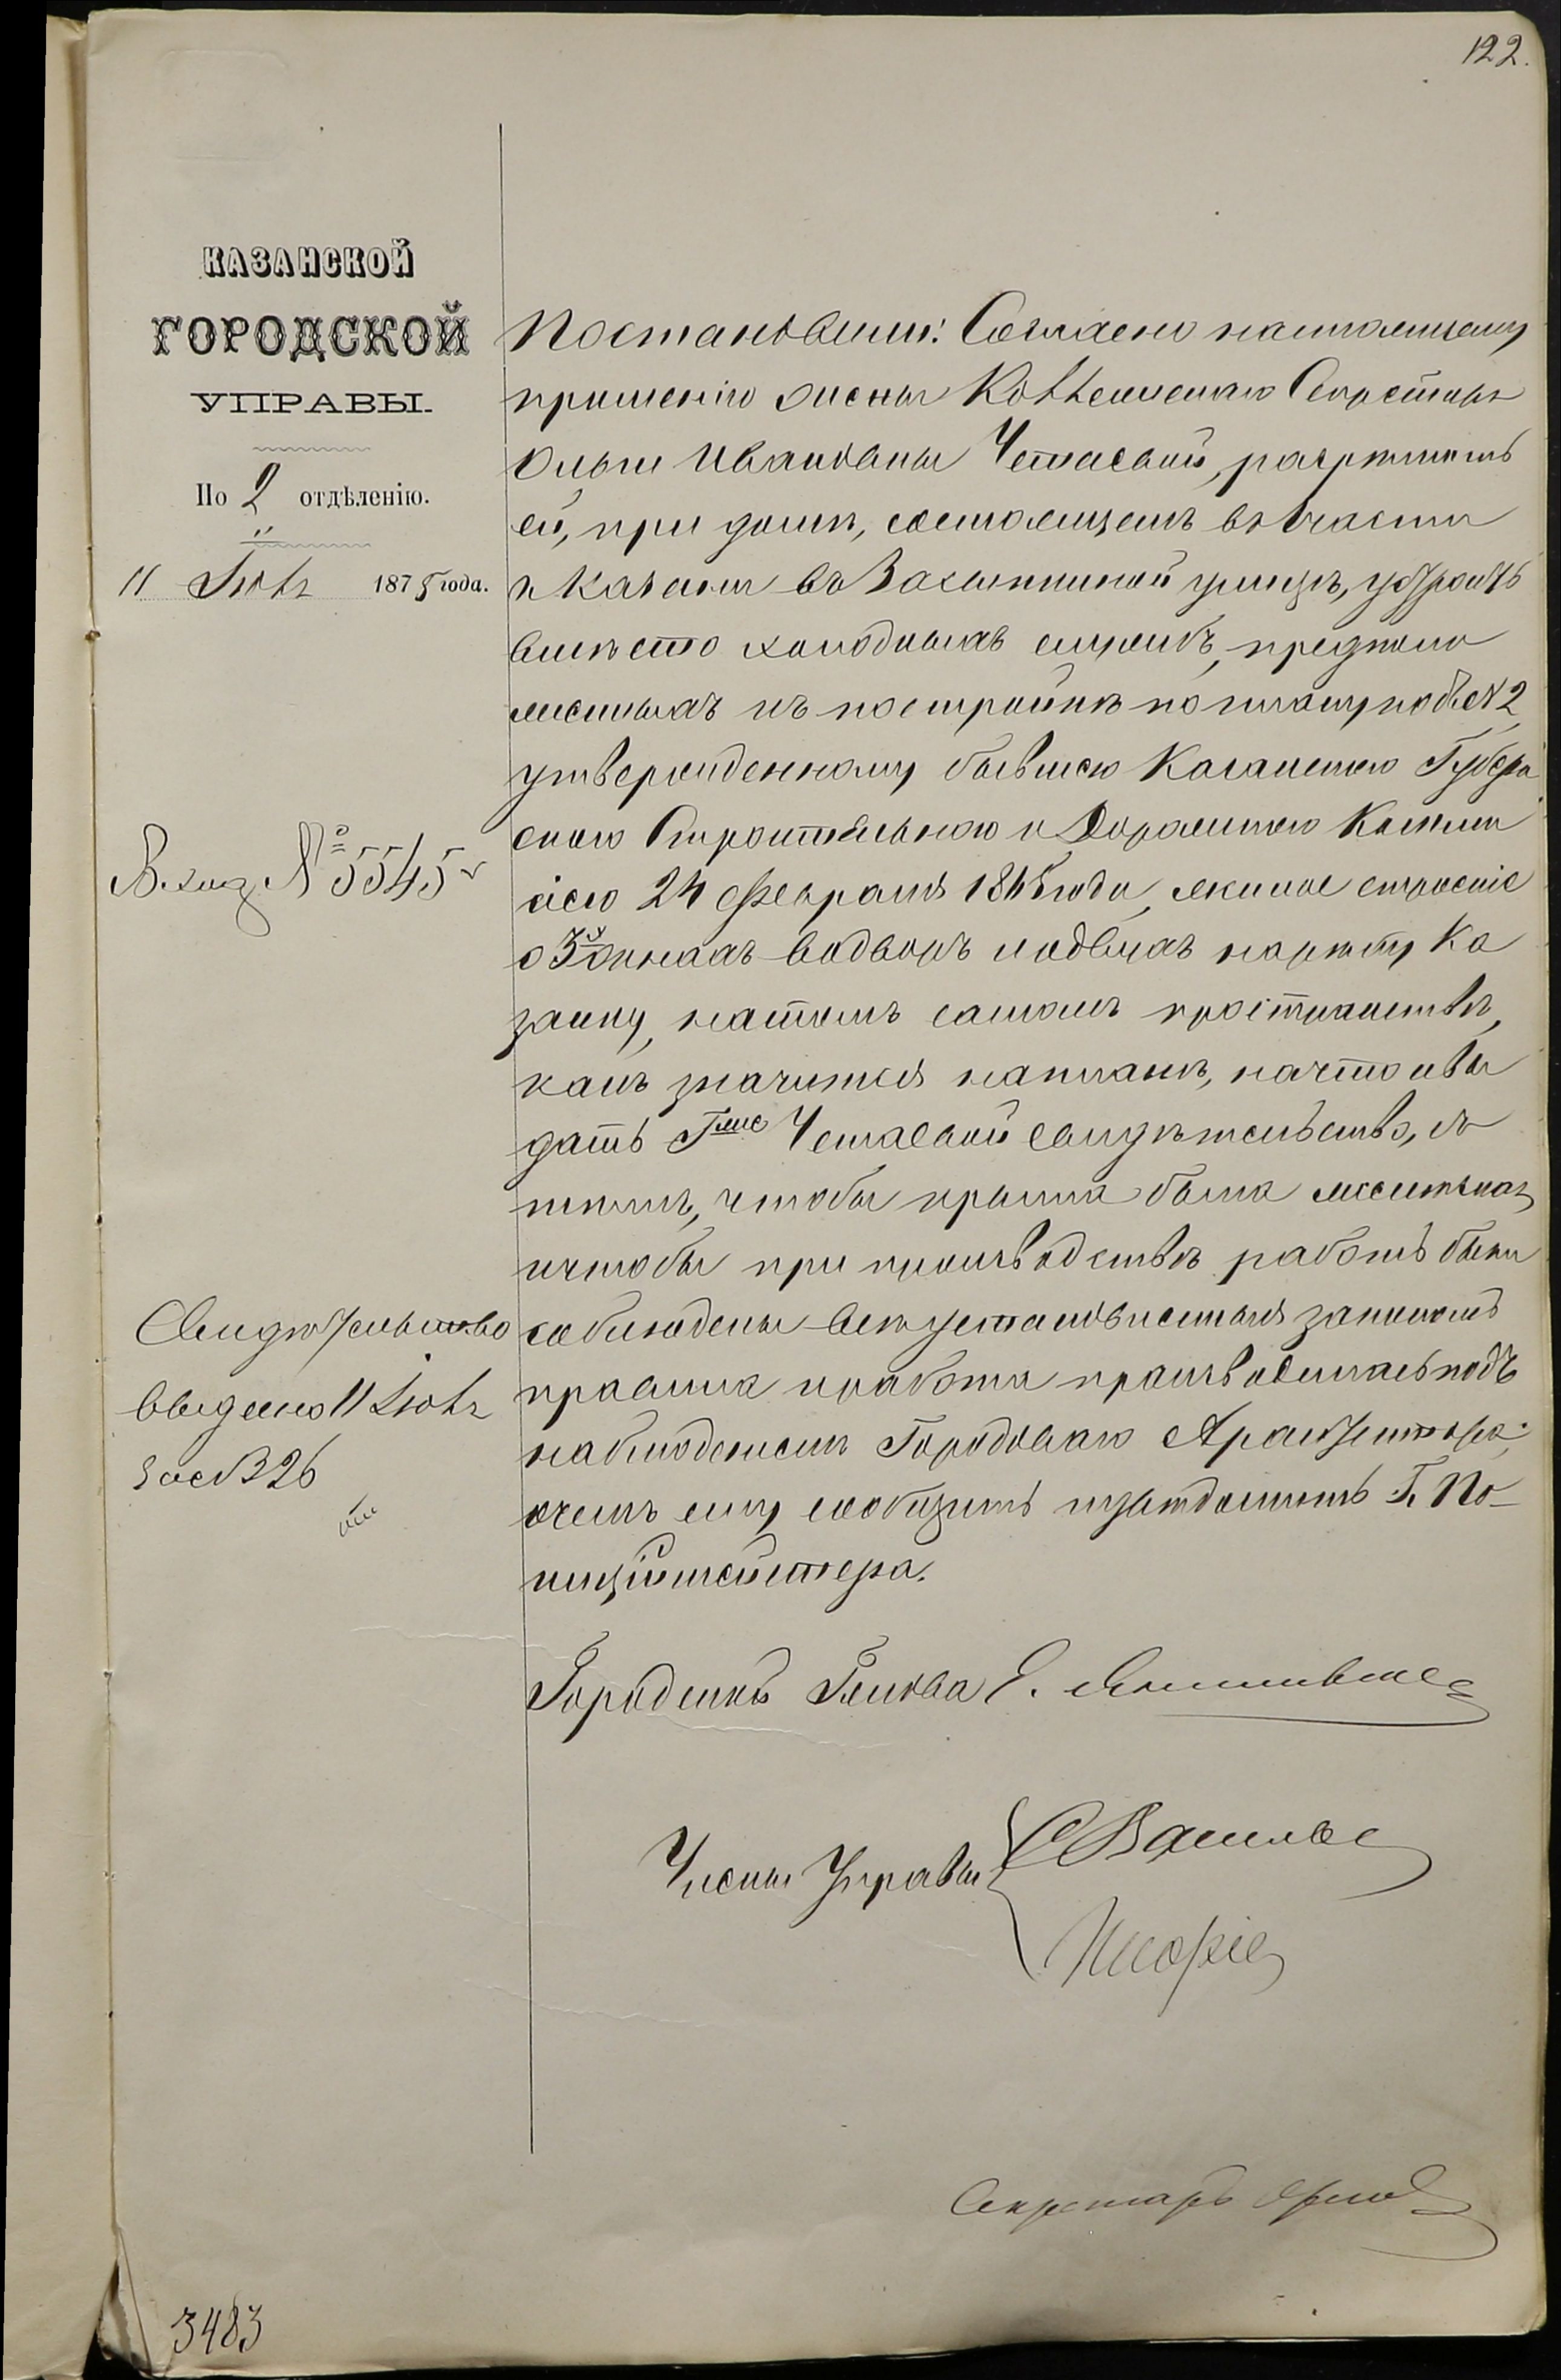 122.
КАЗАНСКОЙ
ГОРОДСКОЙ
УПРАВЫ.
По 2 отдѣленію.
11 Іюля 1875 года.
Постановили: Согласно настоящему
прошенію жены Коллежскаго Секретаря
Ольги Ивановны Четаевой, разрѣшить
ей, при домѣ, состоящемъ во 2 части
г. Казани въ Засыпкиной улицѣ, устроить
вмѣсто холодныхъ службъ, предполо
женныхъ къ постройкѣ по плану подъ № 2,
утвержденному бывшею Казанскою Губерн
скою Строительною и Дорожною Коммис
сіею 24 Февраля 1865 года, жилое строеніе
о 3хъ окнахъ во дворъ и о двухъ на рѣку Ка
занку, на томъ самомъ пространствѣ,
какъ значится на планѣ, на что и вы
дать Гжѣ Четаевой свидѣтельство, съ
тѣмъ, чтобы крыша была желѣзная,
и чтобы при производствѣ работъ были
соблюдены всѣ установленныя закономъ
правила и работа производилась подъ
наблюденіемъ Городоваго Архитектора;
о чемъ ему сообщить и увѣдомить Г. По-
лиціймейстера.
Вход. № 5545
Свидѣтельство
выдано 11 Іюля
за № 326
Городской Голова Е.
Члены Управы
С Васильев
Секретарь
3483